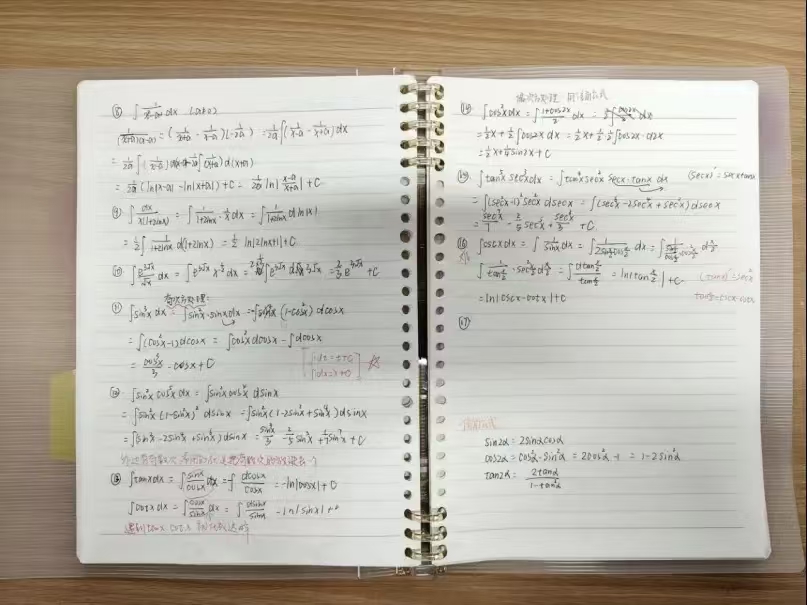 ⑧ ∫ 1/(x²-a²) dx (a≠0)
1/((x+a)(x-a)) = (1/(x+a) - 1/(x-a))(-1/2a) = 1/2a ∫(1/(x-a) - 1/(x+a))dx
= 1/2a (ln|x-a| - ln|x+a|) + C = 1/2a ln|(x-a)/(x+a)| + C
⑨ ∫ dx/(x(1+2lnx)) = ∫ 1/(1+2lnx) · 1/x dx = ∫ 1/(1+2lnx) dln|x|
= 1/2 ∫ 1/(1+2lnx) d(1+2lnx) = 1/2 ln|2lnx+1| + C
⑩ ∫ e^(3√x)/√x dx = 2/3 e^(3√x) + C
奇次方处理:
⑪ ∫sin³x dx = ∫sin²x·sinx dx = -∫(1-cos²x) dcosx
= ∫(cos²x-1)dcosx = ∫cos²x dcosx - ∫dcosx
= cos³x/3 - cosx + C
⑫ ∫sin²x cos⁵x dx = ∫sin²x cos⁴x dsinx
= ∫sin²x(1-sin²x)² dsinx = ∫sin²x(1-2sin²x+sin⁴x)dsinx
= ∫(sin²x-2sin⁴x+sin⁶x)dsinx = sin³x/3 - 2/5 sin⁵x + 1/7 sin⁷x + C
⑬ ∫tanx dx = ∫ sinx/cosx dx = -∫ dcosx/cosx = -ln|cosx| + C
∫cotx dx = ∫ cosx/sinx dx = ∫ dsinx/sinx = ln|sinx| + C
⑭ ∫cos²x dx = ∫ (1+cos2x)/2 dx
= 1/2 x + 1/2 ∫cos2x dx = 1/2 x + 1/2 · 1/2 ∫cos2x · d2x
= 1/2 x + 1/4 sin2x + C
⑮ ∫tan⁵x sec³x dx = ∫tan⁴x sec²x secx·tanx dx (secx)' = secxtanx
= ∫(sec²x-1)² sec²x dsecx = ∫(sec⁶x-2sec⁴x+sec²x)dsecx
= sec⁷x/7 - 2/5 sec⁵x + sec³x/3 + C
⑯ ∫cscx dx = ∫ 1/sinx dx = ∫ 1/(2sin x/2 cos x/2) dx
∫ 1/(tan x/2) · sec² x/2 d x/2 = ∫ dtan x/2 / tan x/2 = ln|tan x/2| + C (tanx)' = sec²x
= ln|cscx-cotx| + C tan x/2 = cscx-cotx
⑰
sin2α = 2sinαcosα
cos2α = cos²α-sin²α = 2cos²α-1 = 1-2sin²α
tan2α = 2tanα/(1-tan²α)